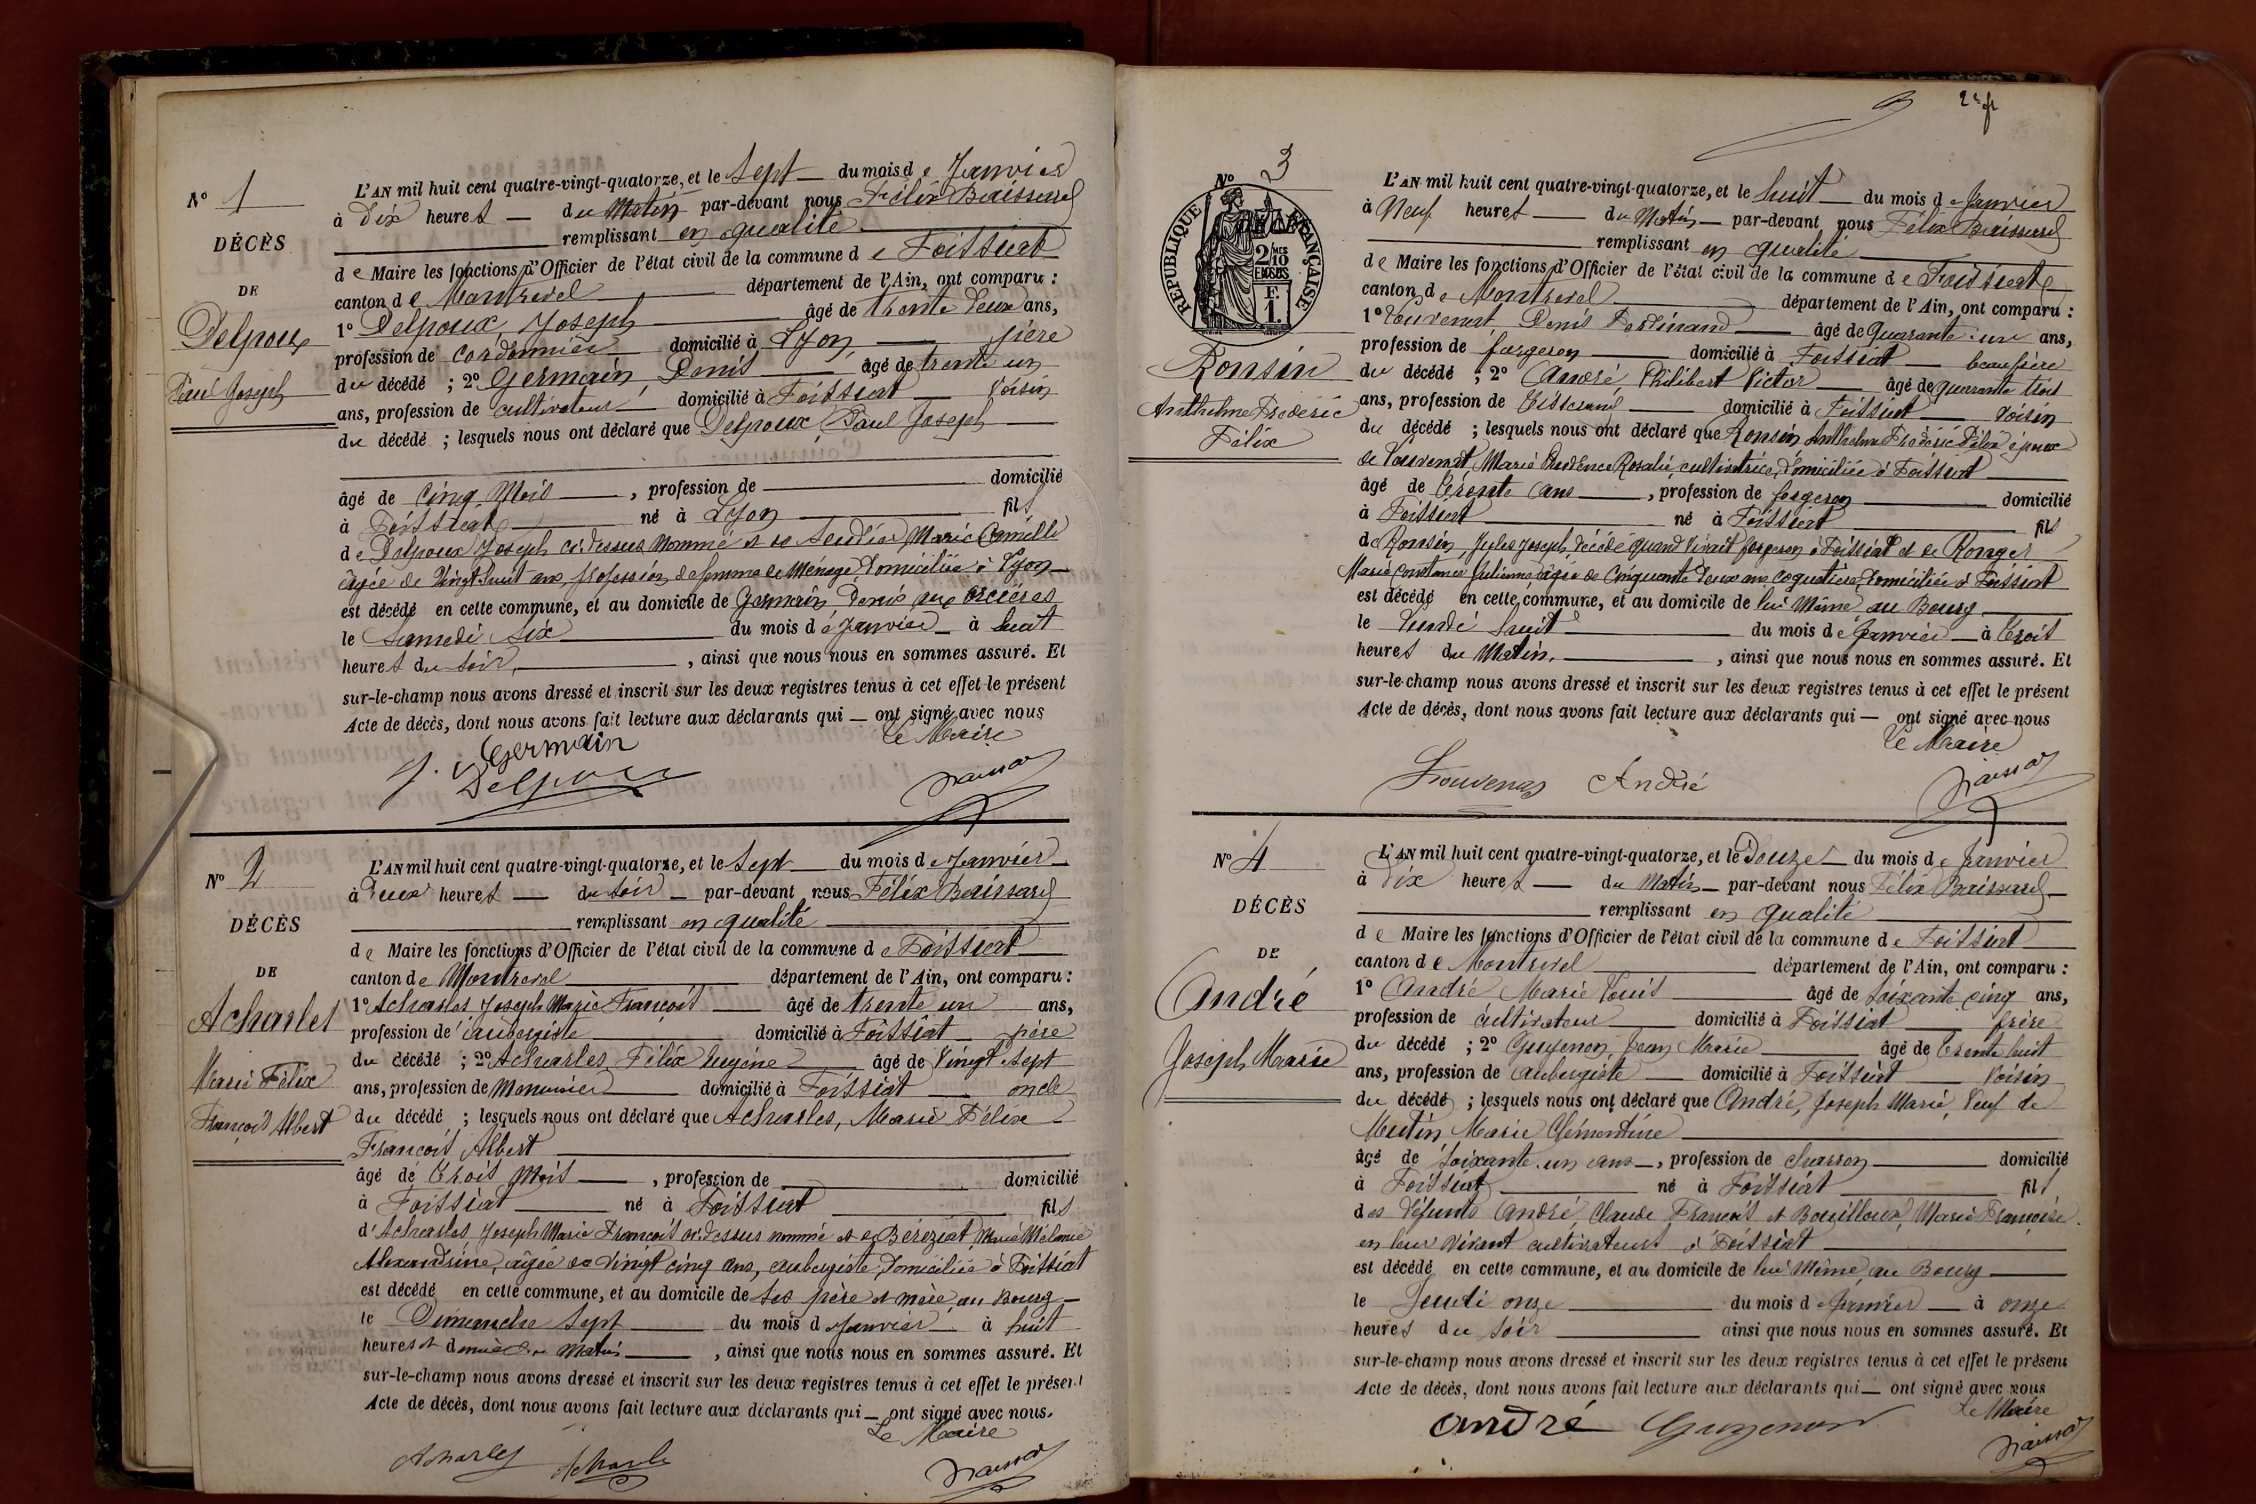 N° 1
DÉCÈS
DE
Delpoux
Paul Joseph
L'AN mil huit cent quatre-vingt-quatorze, et le Sept du mois de Janvier
à Dix heures du Matin par-devant nous Félix Baissard
remplissant en qualité
de Maire les fonctions d'Officier de l'état civil de la commune de Foissiat
canton de Montrevel département de l'Ain, ont comparu :
1° Delpoux, Joseph âgé de trente deux ans,
profession de cordonnier domicilié à Lyon père
du décédé ; 2° Germain, Denis âgé de trente un
ans, profession de cultivateur domicilié à Foissiat voisin
du décédé ; lesquels nous ont déclaré que Delpoux, Paul Joseph
âgé de Cinq Mois , profession de domicilié
à Foissiat né à Lyon fils
de Delpoux Joseph ci-dessus nommé et de Marie Camille
âgée de Vingt huit ans, profession de femme de Ménage, domiciliée à Lyon
est décédé en cette commune, et au domicile de Germain, Denis aux
le Samedi Six du mois de Janvier à huit
heures du soir , ainsi que nous nous en sommes assuré. Et
sur-le-champ nous avons dressé et inscrit sur les deux registres tenus à cet effet le présent
Acte de décès, dont nous avons fait lecture aux déclarants qui — ont signé avec nous
Le Maire
Germain
J. Delpoux
Baissard
N° 2
DÉCÈS
DE
Acharles
Marie Félix
François Albert
L'AN mil huit cent quatre-vingt-quatorze, et le Sept du mois de Janvier
à Deux heures du soir par-devant nous Félix Baissard
remplissant en qualité
de Maire les fonctions d'Officier de l'état civil de la commune de Foissiat
canton de Montrevel département de l'Ain, ont comparu :
1° Acharles, Joseph Marie François âgé de trente un ans,
profession de aubergiste domicilié à Foissiat père
du décédé ; 2° Acharles, Félix Eugène âgé de Vingt sept
ans, profession de Menuisier domicilié à Foissiat oncle
du décédé ; lesquels nous ont déclaré que Acharles, Marie Félix
François Albert
âgé de Trois Mois , profession de domicilié
à Foissiat né à Foissiat fils
d'Acharles, Joseph Marie François ci-dessus nommé et de Béréziat, Marie Mélanie
Alexandrine, âgée de Vingt cinq ans, aubergiste, domiciliée à Foissiat
est décédé en cette commune, et au domicile de ses père et mère au Bourg
le Dimanche Sept du mois de Janvier à huit
heures et demie du Matin , ainsi que nous nous en sommes assuré. Et
sur-le-champ nous avons dressé et inscrit sur les deux registres tenus à cet effet le présent
Acte de décès, dont nous avons fait lecture aux déclarants qui — ont signé avec nous.
Le Maire
Acharles Acharles
Baissard
N° 3
RÉPUBLIQUE FRANÇAISE
2/10 EN SUS
1 F.
Ronsin
Anthelme Frédéric
Félix
L'AN mil huit cent quatre-vingt-quatorze, et le huit du mois de Janvier
à Neuf heures du Matin par-devant nous Félix Baissard
remplissant en qualité
de Maire les fonctions d'Officier de l'état civil de la commune de Foissiat
canton de Montrevel département de l'Ain, ont comparu :
1° Louvenat, Denis Ferdinand âgé de Quarante un ans,
profession de forgeron domicilié à Foissiat beau frère
du décédé ; 2° André, Philibert Victor âgé de quarante trois
ans, profession de Tisserand domicilié à Foissiat voisin
du décédé ; lesquels nous ont déclaré que Ronsin, Anthelme Frédéric Félix époux
de Louvenat, Marie Prudence Rosalie, cultivatrice, domiciliée à Foissiat
âgé de Trente ans , profession de forgeron domicilié
à Foissiat né à Foissiat fils
de Ronsin, Jules Joseph, décédé quand vivait forgeron à Foissiat et de Ronger
Marie Constance Julienne âgée de Cinquante deux ans coquetière domiciliée à Foissiat
est décédé en cette commune, et au domicile de lui Même au Bourg
le Lundi huit du mois de Janvier à trois
heures du Matin, , ainsi que nous nous en sommes assuré. Et
sur-le-champ nous avons dressé et inscrit sur les deux registres tenus à cet effet le présent
Acte de décès, dont nous avons fait lecture aux déclarants qui — ont signé avec nous
Le Maire
Louvenat André
Baissard
N° 4
DÉCÈS
DE
André
Joseph Marie
L'AN mil huit cent quatre-vingt-quatorze, et le Douze du mois de Janvier
à Dix heures du Matin par-devant nous Félix Baissard
remplissant en qualité
de Maire les fonctions d'Officier de l'état civil de la commune de Foissiat
canton de Montrevel département de l'Ain, ont comparu :
1° André Marie Louis âgé de soixante cinq ans,
profession de cultivateur domicilié à Foissiat frère
du décédé ; 2° Guyenon, Jean Marie âgé de Trente huit
ans, profession de aubergiste domicilié à Foissiat voisin
du décédé ; lesquels nous ont déclaré que André, Joseph Marie, Veuf de
Mutin Marie Clémentine
âgé de soixante un ans , profession de charron domicilié
à Foissiat né à Foissiat fils
des défunts André, Claude François et Bouilloux, Marie Françoise
en leur vivant cultivateurs à Foissiat
est décédé en cette commune, et au domicile de lui Même au Bourg
le Jeudi onze du mois de Janvier à onze
heures du soir ainsi que nous nous en sommes assuré. Et
sur-le-champ nous avons dressé et inscrit sur les deux registres tenus à cet effet le présent
Acte de décès, dont nous avons fait lecture aux déclarants qui — ont signé avec nous
Le Maire
André Guyenon
Baissard